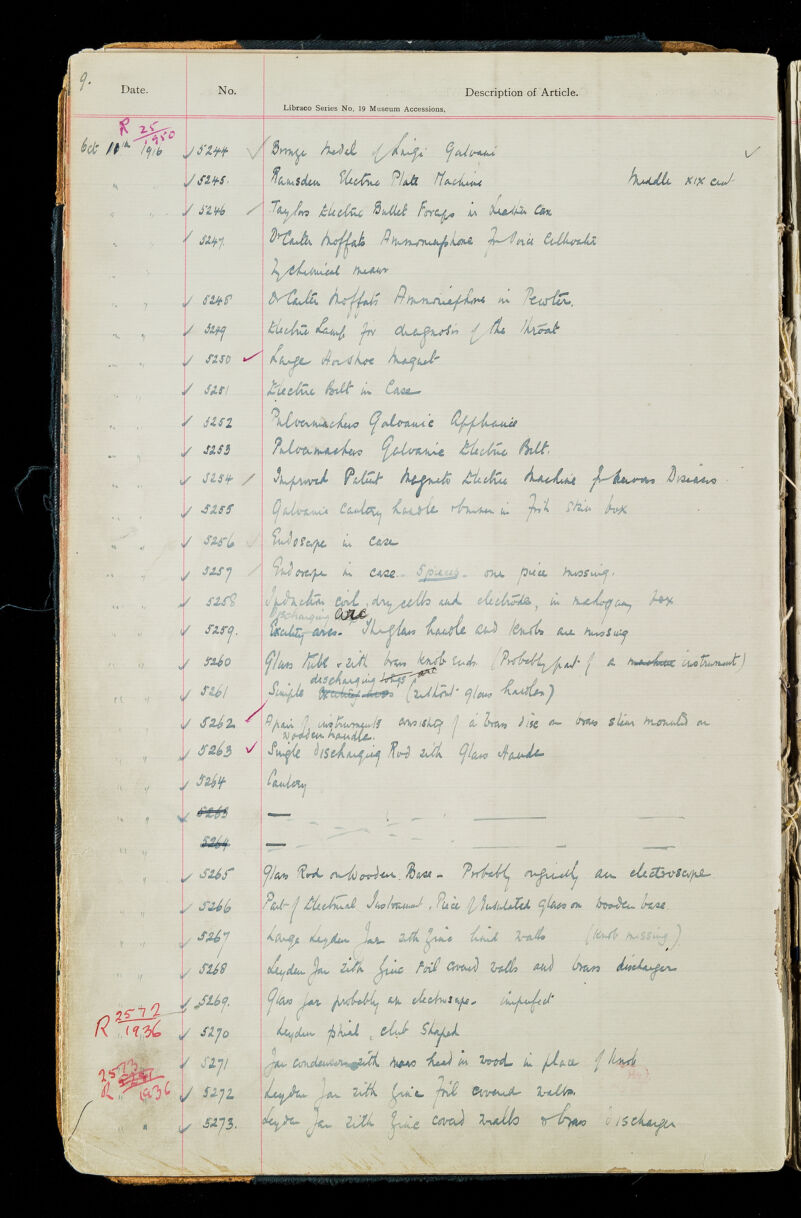 9.
Date. No. Description of Article.
Libraco Series No. 19 Museum Accessions.
R 25/1950
Oct 10th 1916 5244 Bronze Medal of Luigi Galvani
5245. Ramsden Electric Plate Machine Middle XIX cent
5246 Taylors Electric Bullet Forceps in Leather Case
5247 Dr Carter Moffats Ammoniaphone for Voice Cultivation
by chemical means
5248 Dr Carter Moffats Ammoniaphone in Pewter.
5249 Electric Lamp for diagnosis of the Throat
5250 Large Horshoe Magnet
5251 Electric Belt in Case
5252 Pulvermachers Galvanic Appliance
5253 Pulvermachers Galvanic Electric Belt.
5254 Improved Patent Magneto Electric Machine for Nervous Diseases
5255 Galvanic Cautery handle & burner in fish skin box
5256 Endoscope in case
5257 Endoscope in case. 5 pieces. one piece missing.
5258 Induction coil, dry cells and electrodes, in mahogany box
Discharging arc
5259. The glass handle and knobs are missing
5260 Glass tube with brass knob ends (Probably part of a machine instrument)
discharging tongs arc
5261 Simple (without glass handles)
5262 A pair of instruments consisting of a brass disc on brass stem mounted on
wooden handle.
5263 Single Discharging Rod with Glass Handle
5264 Cautery
5263 —
5264 —
5265 Glass Rod on Wooden Base - Probably originally an electroscope
5266 Part of Electrical Instrument. Piece of Insulated glass on wooden base.
5267 Large Leyden Jar with Zinc lined walls (knob missing)
5268 Leyden Jar with Zinc Foil covered walls and brass discharger
5269. Glass jar probably an electroscope - imperfect
R 2572/1936 5270 Leyden phial, club shaped
5271 Jar condenser with mans head in wood in place of knob
2573
R 1936 5272 Leyden Jar with Zinc foil covered walls.
5273. Leyden Jar with Zinc coverd walls & brass discharger